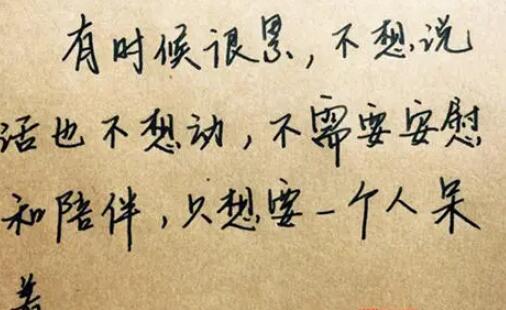 有时候很累，不想说
话也不想动，不需要安慰
和陪伴，只想要一个人呆
着